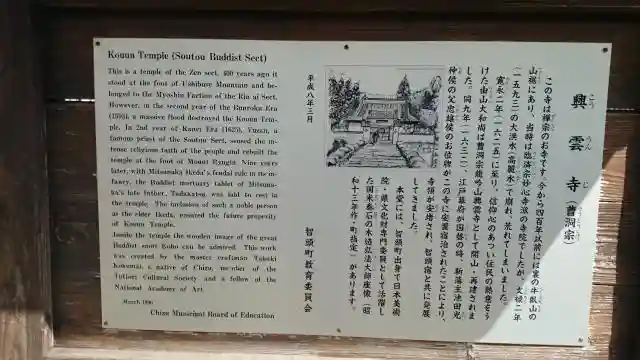 Kouun Temple (Soutou Buddist Sect)
This is a temple of the Zen sect. 400 years ago it
stood at the foot of Ushibuse Mountain and be-
longed to the Myoshin Faction of the Rin ai Sect.
However, in the second year of the Bunroku Era
(1593), a massive flood destroyed the Kouun Tem-
ple. In 2nd year of Kanei Era (1625), Yuzan, a
famous priest of the Soutou Sect, sensed the in-
tense religious faith of the people and rebuilt the
temple at the foot of Mount Ryugin. Nine years
later, with Mitsunaka Ikeda's feudal rule in its in-
fancy, the Buddist mortuary tablet of Mitsuna-
ka's late father, Tadakatsu, was laid to rest in
the temple. The inclusion of such a noble person
as the elder Ikeda, ensured the future property
of Kouun Temple.
Inside the temple the wooden image of the great
Buddist saint Kobo can be admired. This work
was created by the master craftman
a native of Chizu, member of the
Tottori Cultural Society and a fellow of the
National Academy of Art.
March 1996
Chizu Municipal Board of Education
興雲寺(曹洞宗)
こう うん じ
この寺は禅宗のお寺です。今から四百年以前には裏の牛臥山の
山裾にあり、当時は臨済宗妙心寺派の寺院でしたが、文禄二年
(一五九三)の大洪水(高麗水)で崩れ、荒れてしまいました。
寛永二年(一六二五)に至り、信仰心のあつい住民の熱意をう
けた由山大和尚は曹洞宗龍吟山興雲寺として開山・再建されま
した。同九年(一六三二)、江戸幕府が国替の時、新藩主池田光
仲侯の父忠雄侯のお位牌が、この寺に安置宿泊されたことにより、
寺領が安堵され、智頭宿と共に発展
してきました。
本堂には、智頭町出身で日本美術
院・県文化財専門委員として活躍し
た国米泰石の木造弘法大師座像(昭
和十三年作・町指定)があります。
平成八年三月
智頭町教育委員会